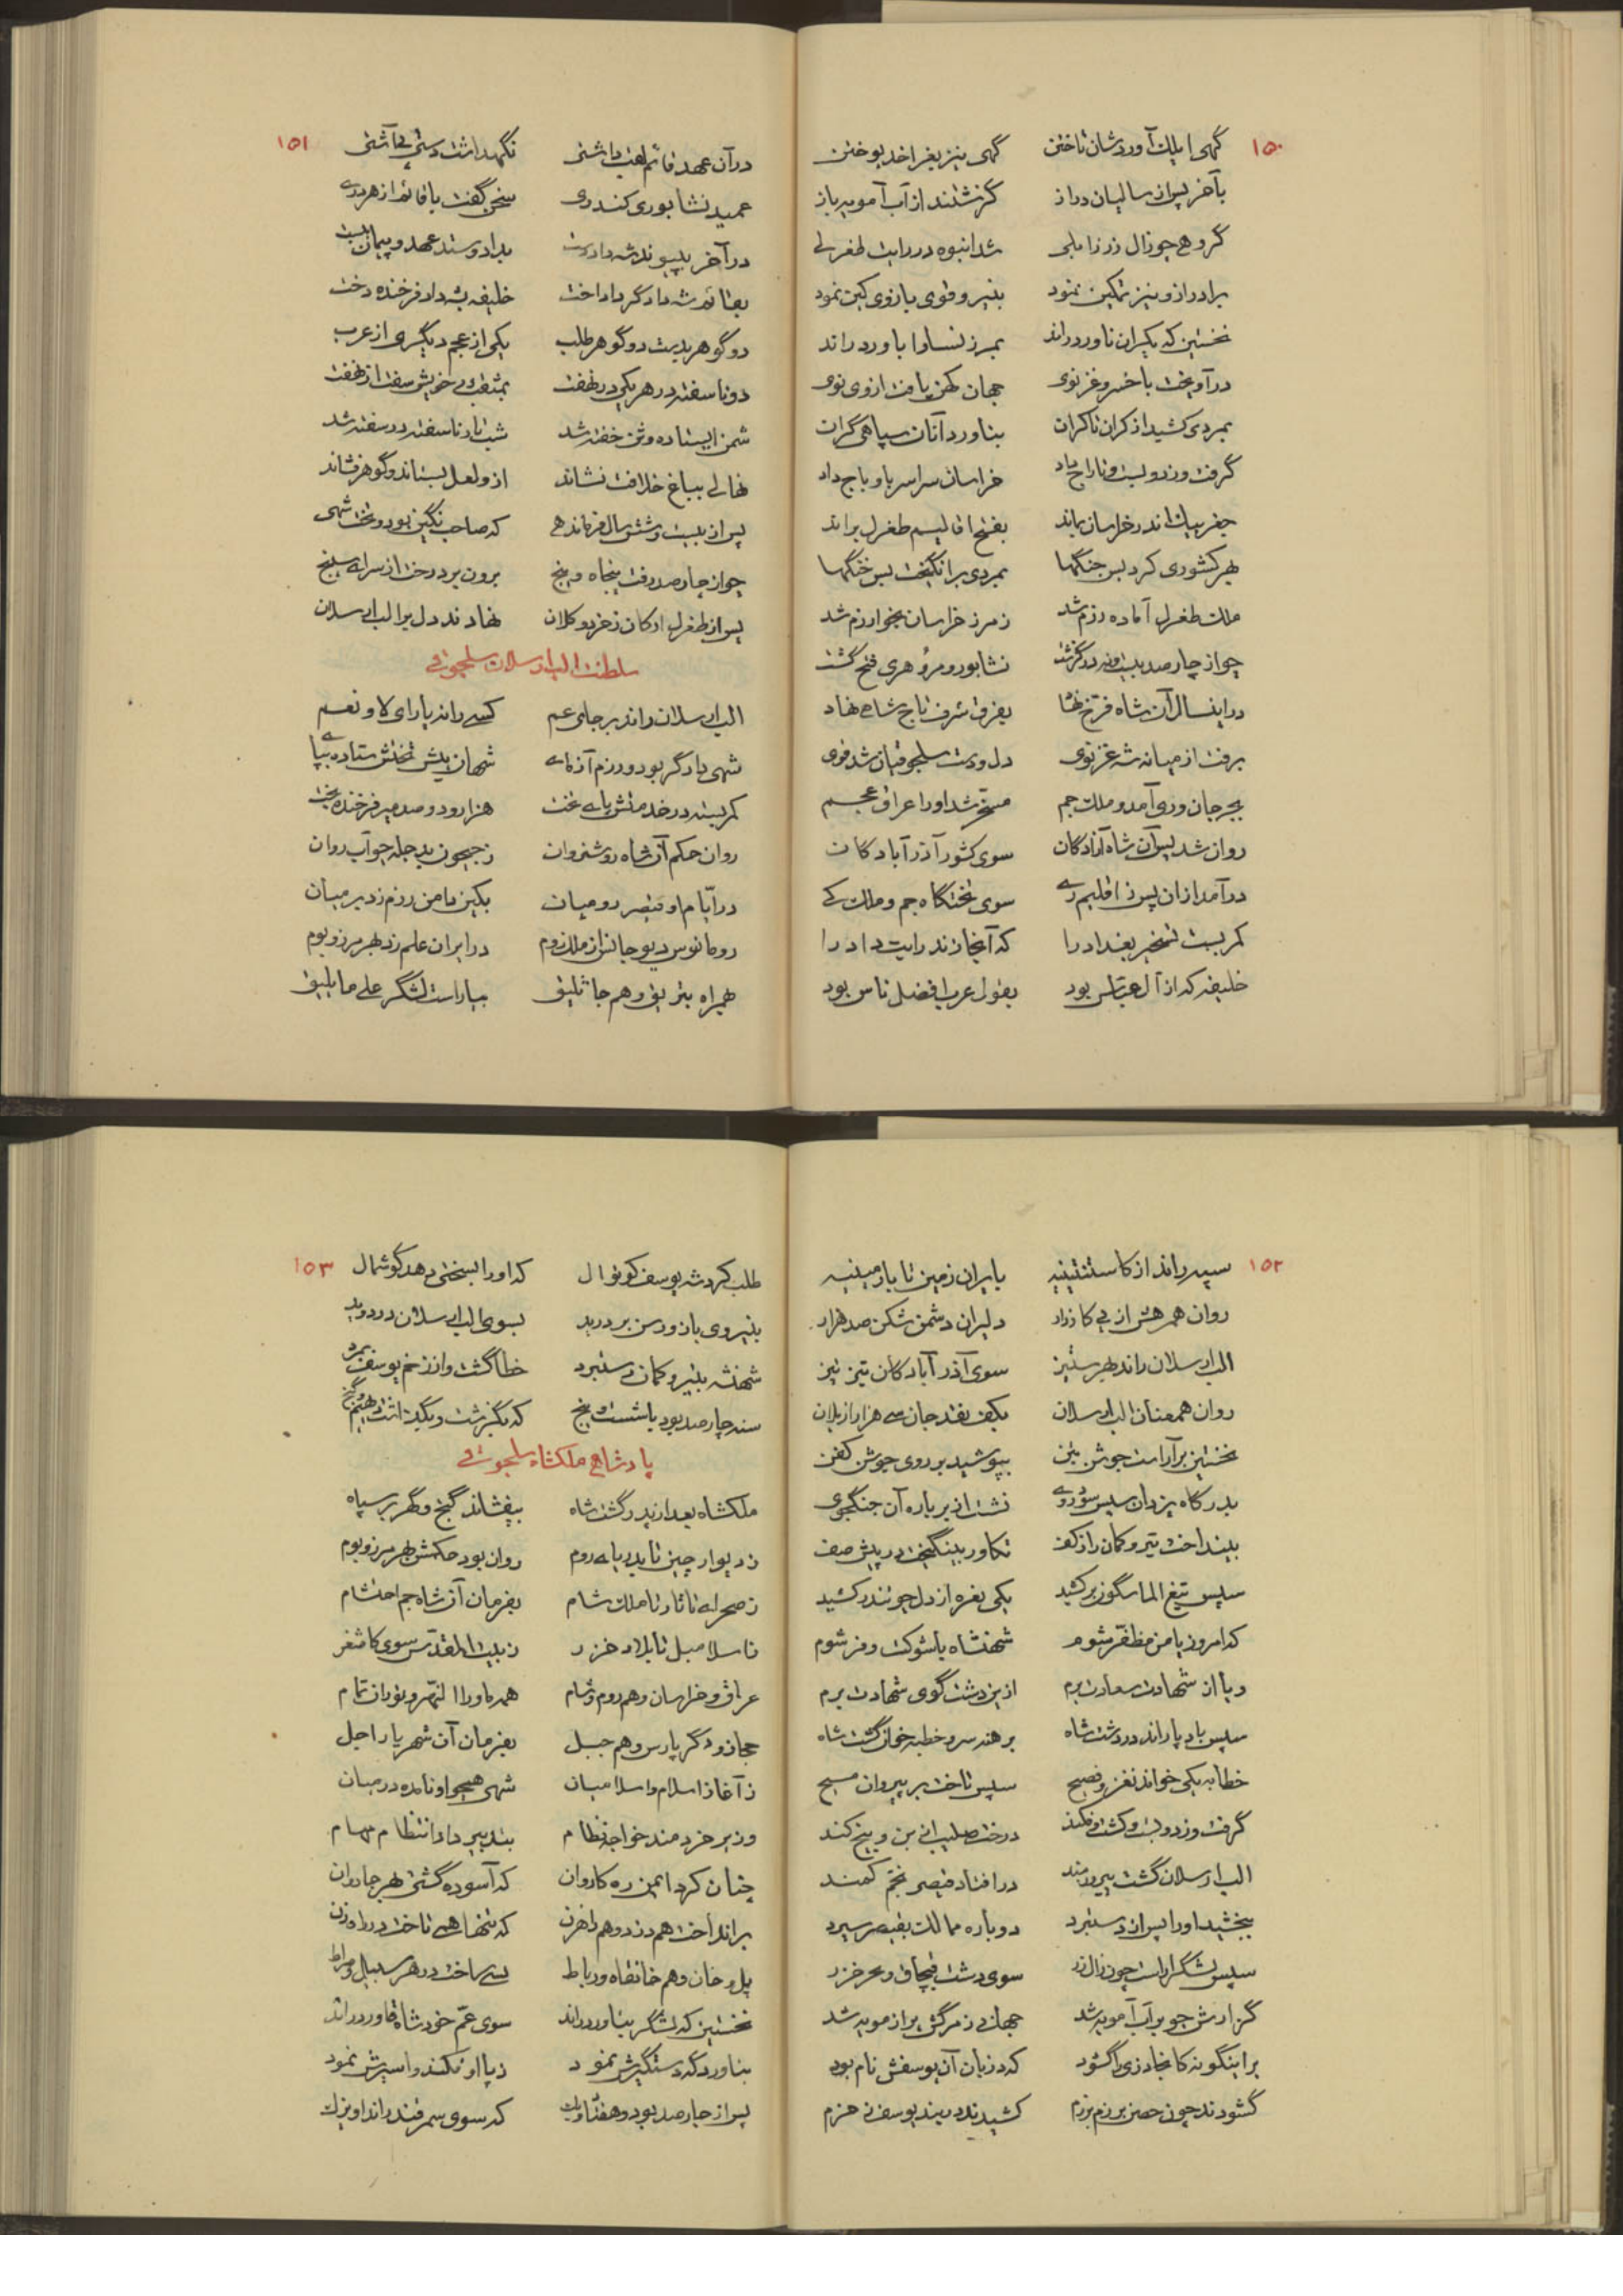 ۱۵۰
گهی ایلک آورد شان تاختن گهی نیز بغرا خد بوختن
بآخر پس از سالیان دراز گزشتند از آب آمویه باز
گروهی چو زال زر زابلی شد انبوه در رایت طغرلی
برادر از و نیز تمکین نمود بنیرو قوی بازوی کین نمود
نخستین که یکران ناورد راند بمرز نسا و ابا ورد راند
در آویخت با خسرو غزنوی جهان کهن یافت از وی نوی
بمردی کشید از کران تا کران بناورد آنان سپاهی گران
گرفت و زد و بست و تاراج داد خراسان سراسر باو باج داد
جغر بیک اندر خراسان بماند بفتح اقالیم طغرل براند
بهر کشوری کرد بس جنگها بمردی برانگیخت بس خنگها
ملک طغرل آماده رزم شد ز مرز خراسان بخوارزم شد
چو از چارصد بیست و نه در گزشت نشابور و مرو و هری فتح گشت
در اینسال آن شاه فرخ نهاد بفرق شرف تاج شاهی نهاد
برفت از میانه شه غزنوی دل و دست سلجوقیان شد قوی
بجرجان و ری آمد و ملک جم مسخر شد او را عراق عجم
روان شد پس آن شاه آزادگان سوی کشور آذر آبادگان
در آمد از ان پس ز اقلیم ری سوی تختگاه جم و ملک کی
کمر بست تسخیر بغداد را که آنجا زند رایت داد را
خلیفه که از آل عباس بود بقول عرب افضل ناس بود
۱۵۱
در آن عهد قائم لقب داشتی نگهداشت دستی بی آشتی
عمید نشابوری کندری سخن گفت با قائم از هر دری
در آخر بپیوند شه داد دست بداد و ستد عهد و پیمان ببست
بقائم شه دادگر داد اخت خلیفه بشه داد فرخنده دخت
دو گوهر بدیت دو گوهر طلب یکی از عجم دیگری از عرب
دو ناسفته در هر یکی در نهفت بمثقب دی خویش سفت از نهفت
شمن ایستاده وثن خفته شد شب تار ناسفته در سفته شد
نهالی بباغ خلافت نشاند از و لعل بستاند و گوهر فشاند
پس از بیست و شش سال فرماندهی که صاحب نگین بود و تخت شهی
چو از چارصد رفت پنجاه و پنج برون برد رخت از سرای سپنج
پس از طغرل ارکان ز خرد و کلان نهادند دل بر الب ارسلان
سلطنت الب ارسلان سلجوقی
الب ارسلان راند بر جای عم کسی را نه یارای لا و نعم
شهی دادگر بود و رزم آزمای شهان پیش تختش ستاده بپا
کمر بسته در خدمتش پای تخت هزار و دو صد میر فرخنده بخت
روان حکم آن شاه روشن روان ز جیحون بدجله چو آب روان
در ایام او قیصر رومیان بکین دامن رزم زد بر میان
رومانوس دیوجانس از ملک روم در ایران علم زد بهر مرز و بوم
همراه بتریق و هم جاثلیق بیاراست لشگر علی ما یلیق
۱۵۲
سپه راند از کاستنتینیه بایران زمین تا بارمینیه
روان همرهش از پی کارزار دلیران دشمن شکن صد هزار
الب ارسلان راند بهر ستیز سوی آذر آبادگان تیز تیز
روان همعنان الب ارسلان بکف نقد جان سی هزار از یلان
نخستین بر آراست جوشن بتن بپوشید بر روی جوشن کفن
بدرگاه یزدان سپس سود روی نشست از بر باره آن جنگجوی
بینداخت تیر و کمان را ز کف تکاور بینگیخت در پیش صف
سپس تیغ الماسگون بر کشید یکی نعره از دل چو تندر کشید
که امروز یا من مظفر شوم شهنشاه با شوکت و فر شوم
و یا از شهادت سعادت برم ازین دشت گوی شهادت برم
سپس باد پا راند در دشت شاه برهنه سر و خطبه خوان گشت شاه
خطابه یکی خواند نغز و فصیح سپس تاخت بر پیروان مسیح
گرفت و زد و بست و کشت و فکند درخت صلیب از بن و بیخ کند
الب ارسلان گشت پیروزمند در افتاد قیصر بخم کمند
ببخشید او را پس از دستبرد دوباره ممالک بقیصر سپرد
سپس لشگر آراست چون زال زر سوی دشت قبچاق و بحر خزر
گزارش چو بر آب آمویه شد جهان ز مرگش پر از مویه شد
بر اینگونه کانجا دزی را گشود که دزبان آن یوسفش نام بود
گشودند چون حصن بر رزم بزم کشیدند در بند یوسف ز حزم
۱۵۳
طلب کرد شه یوسف کوتوال که او را بسختی دهد گوشمال
بنیروی بازو رسن بر درید بسوی الب ارسلان در دوید
شهنشه بتیر و کمان دستبرد خطا گشت و از زخم یوسف بمرد
سنه چارصد بود با شست و پنج که بگزشت و بگذاشت دیهیم و گنج
پادشاهی ملکشاه سلجوقی
ملکشاه بعد از پدر گشت شاه بیفشاند گنج و گهر بر سپاه
ز دیوار چین تا بدریای روم روان بود حکمش بهر مرز و بوم
ز صحرای تاتار تا ملک شام بفرمان آن شاه جم احتشام
ز اسلامبل تا بلاد خزر ز بیت المقدس سوی کاشغر
عراق و خراسان و هم روم و شام همه ماوراالنهر و توران تمام
حجاز و دگر پارس و هم جبل بفرمان آن شهریار اجل
ز آغاز اسلام و اسلامیان شهی همچو او نامده در میان
وزیر خردمند خواجه نظام بتدبیر داد انتظام مهام
چنان کرد ایمن ره کاروان که آسوده گشتی بهر جا روان
برانداخت هم دزد و هم راهزن که تنها همی تاخت در راه زن
پل و خان و هم خانقاه و رباط بسی ساخت در هر سبیل و صراط
نخستین که لشگر بناورد راند سوی عم خود شاه قاورد راند
بناوردگه دستگیرش نمود ز پا اوفکند و اسیرش نمود
پس از چارصد بود و هفتاد و یک که سوی سمرقند راند او یزک